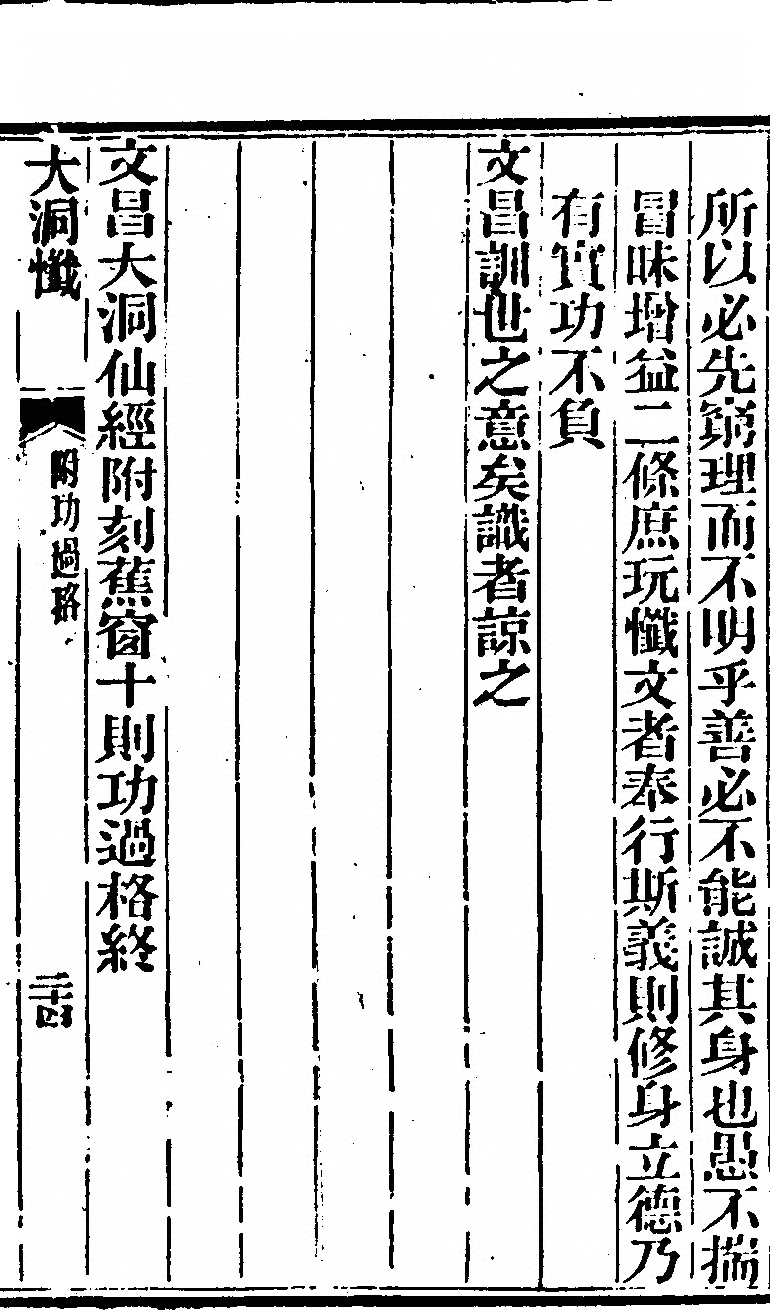 所以必先窮理而不明乎善必不能誠其身也愚不揣
冒昧增益二條庶玩懺文者奉行斯義則修身立德乃
有實功不負
文昌訓世之意矣識者諒之
文昌大洞仙經附刻蕉窗十則功過格終
大洞懺
附功過格
二十四